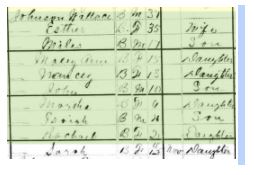 Johnson Wallace B M 31
Esther B F 35 Wife
Miles B M 11 Son
Mary Ann B F 15 Daughter
B F 13 Daughter
John B M 10 Son
Martha B F 6 Daughter
B M 4 Son
Rachael B F 2 Daughter
Sarah B F Daughter